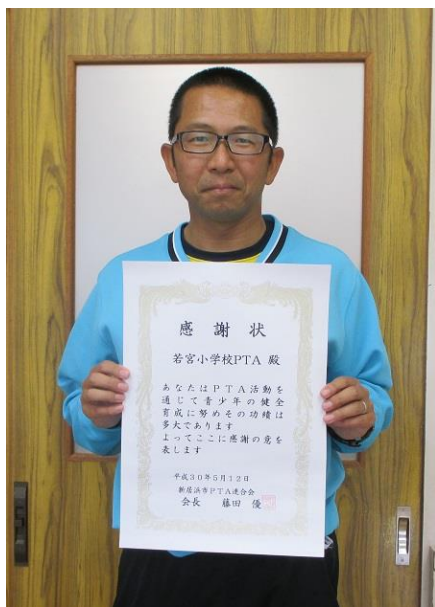 感謝状
若宮小学校PTA 殿
あなたはPTA活動を
通じて青少年の健全
育成に努めその功績は
多大であります
よってここに感謝の意を
表します
平成30年5月12日
新居浜市PTA連合会
会長 藤田 優